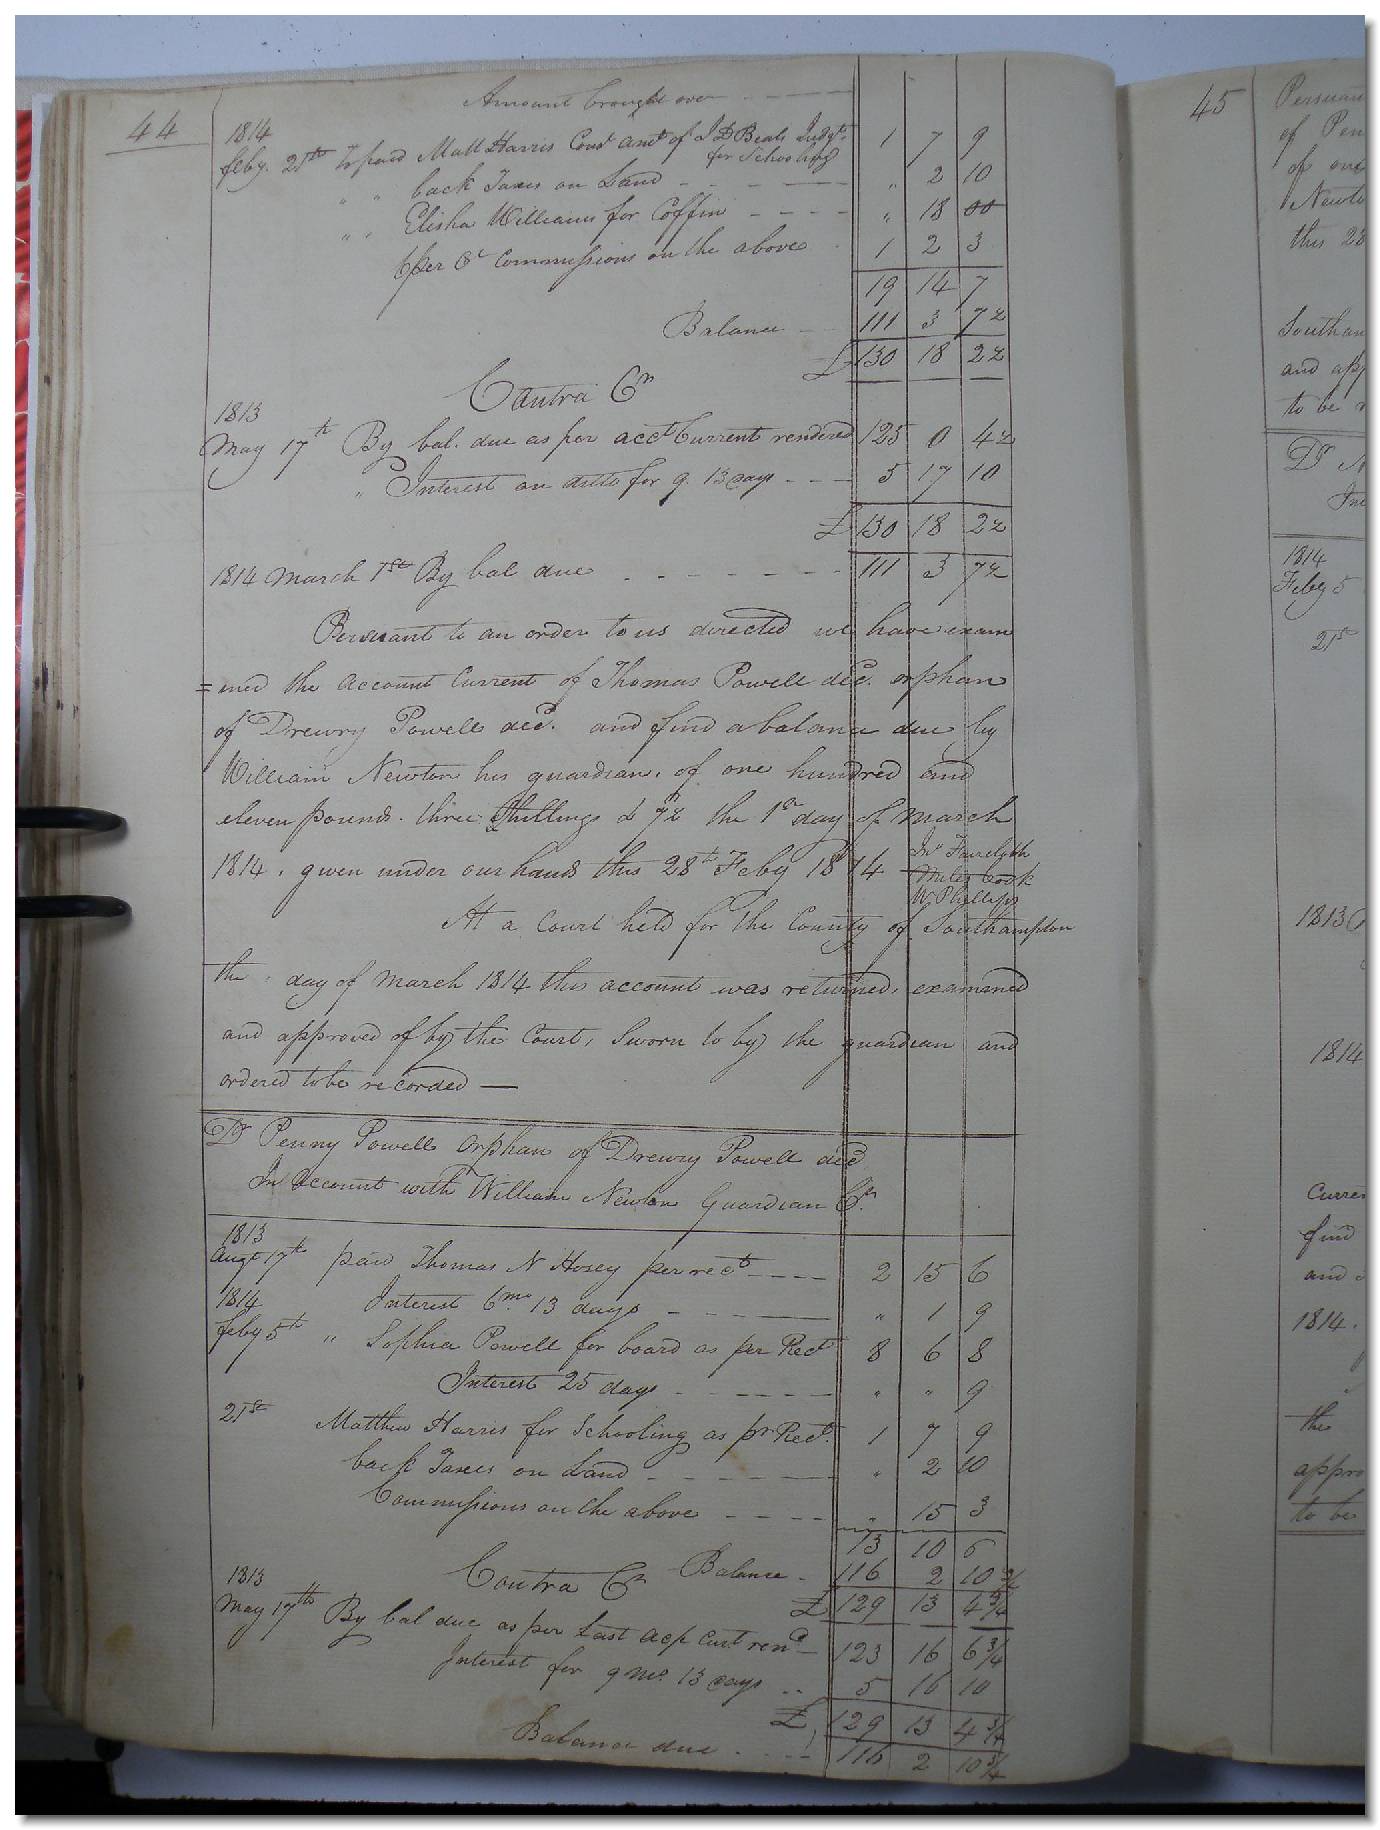 44
Amount brought over
1814
Feby. 21st To paid Matt Harris Const amt of J D Beals Judgt. 1 7 9
for Schooling
" " back Taxes on Land " 2 10
" " Elisha Williams for Coffin " 18 00
6 per Ct Commissions on the above 1 2 3
19 14 7
Balance 111 3 7½
£ 130 18 2½
Contra Cr
1813
May 17th By bal. due as per acct Current rendered 125 0 4½
" Interest on ditto for 9. 13 days 5 17 10
£ 130 18 2½
1814 March 1st By bal due 111 3 7½
Persuant to an order to us directed we have exam
=ined the account Current of Thomas Powell decd. orphan
of Drewry Powell decd. and find a balance due by
William Newton his guardian, of one hundred and
eleven pounds three Shillings & 7½ the 1st day of March
1814. given under our hands this 28th Feby 1814
Miles Cook
W Phillips
At a Court held for the County of Southampton
the day of March 1814 this account was returned, examined
and approved of by the Court, Sworn to by the guardian and
ordered to be recorded —
Dr Penny Powell orphan of Drewry Powell decd
In account with William Newton Guardian Cr.
1813
Augt 17th paid Thomas N Hosey per rect 2 15 6
1814 Interest 6 mo 13 days " 1 9
Feby 5th " Sophia Powell for board as per Rect 8 6 8
Interest 25 days " " 9
21st Matthew Harris for Schooling as pr Rect. 1 7 9
back Taxes on Land " 2 10
Commissions on the above " 15 3
13 10 6
Balance 116 2 10¾
Contra Cr £ 129 13 4¾
1813
May 17th By bal due as per Last acct Curt rend 123 16 6¾
Interest for 9 mo. 13 days 5 16 10
£ 129 13 4¾
Balance due 116 2 10¾
45
Persuan
of Pen
of
Newto
this 28
Southam
and app
to be
Dr
1814
Feby 5
21st
1813
1814
Curren
find
and
1814.
the
appro
to be